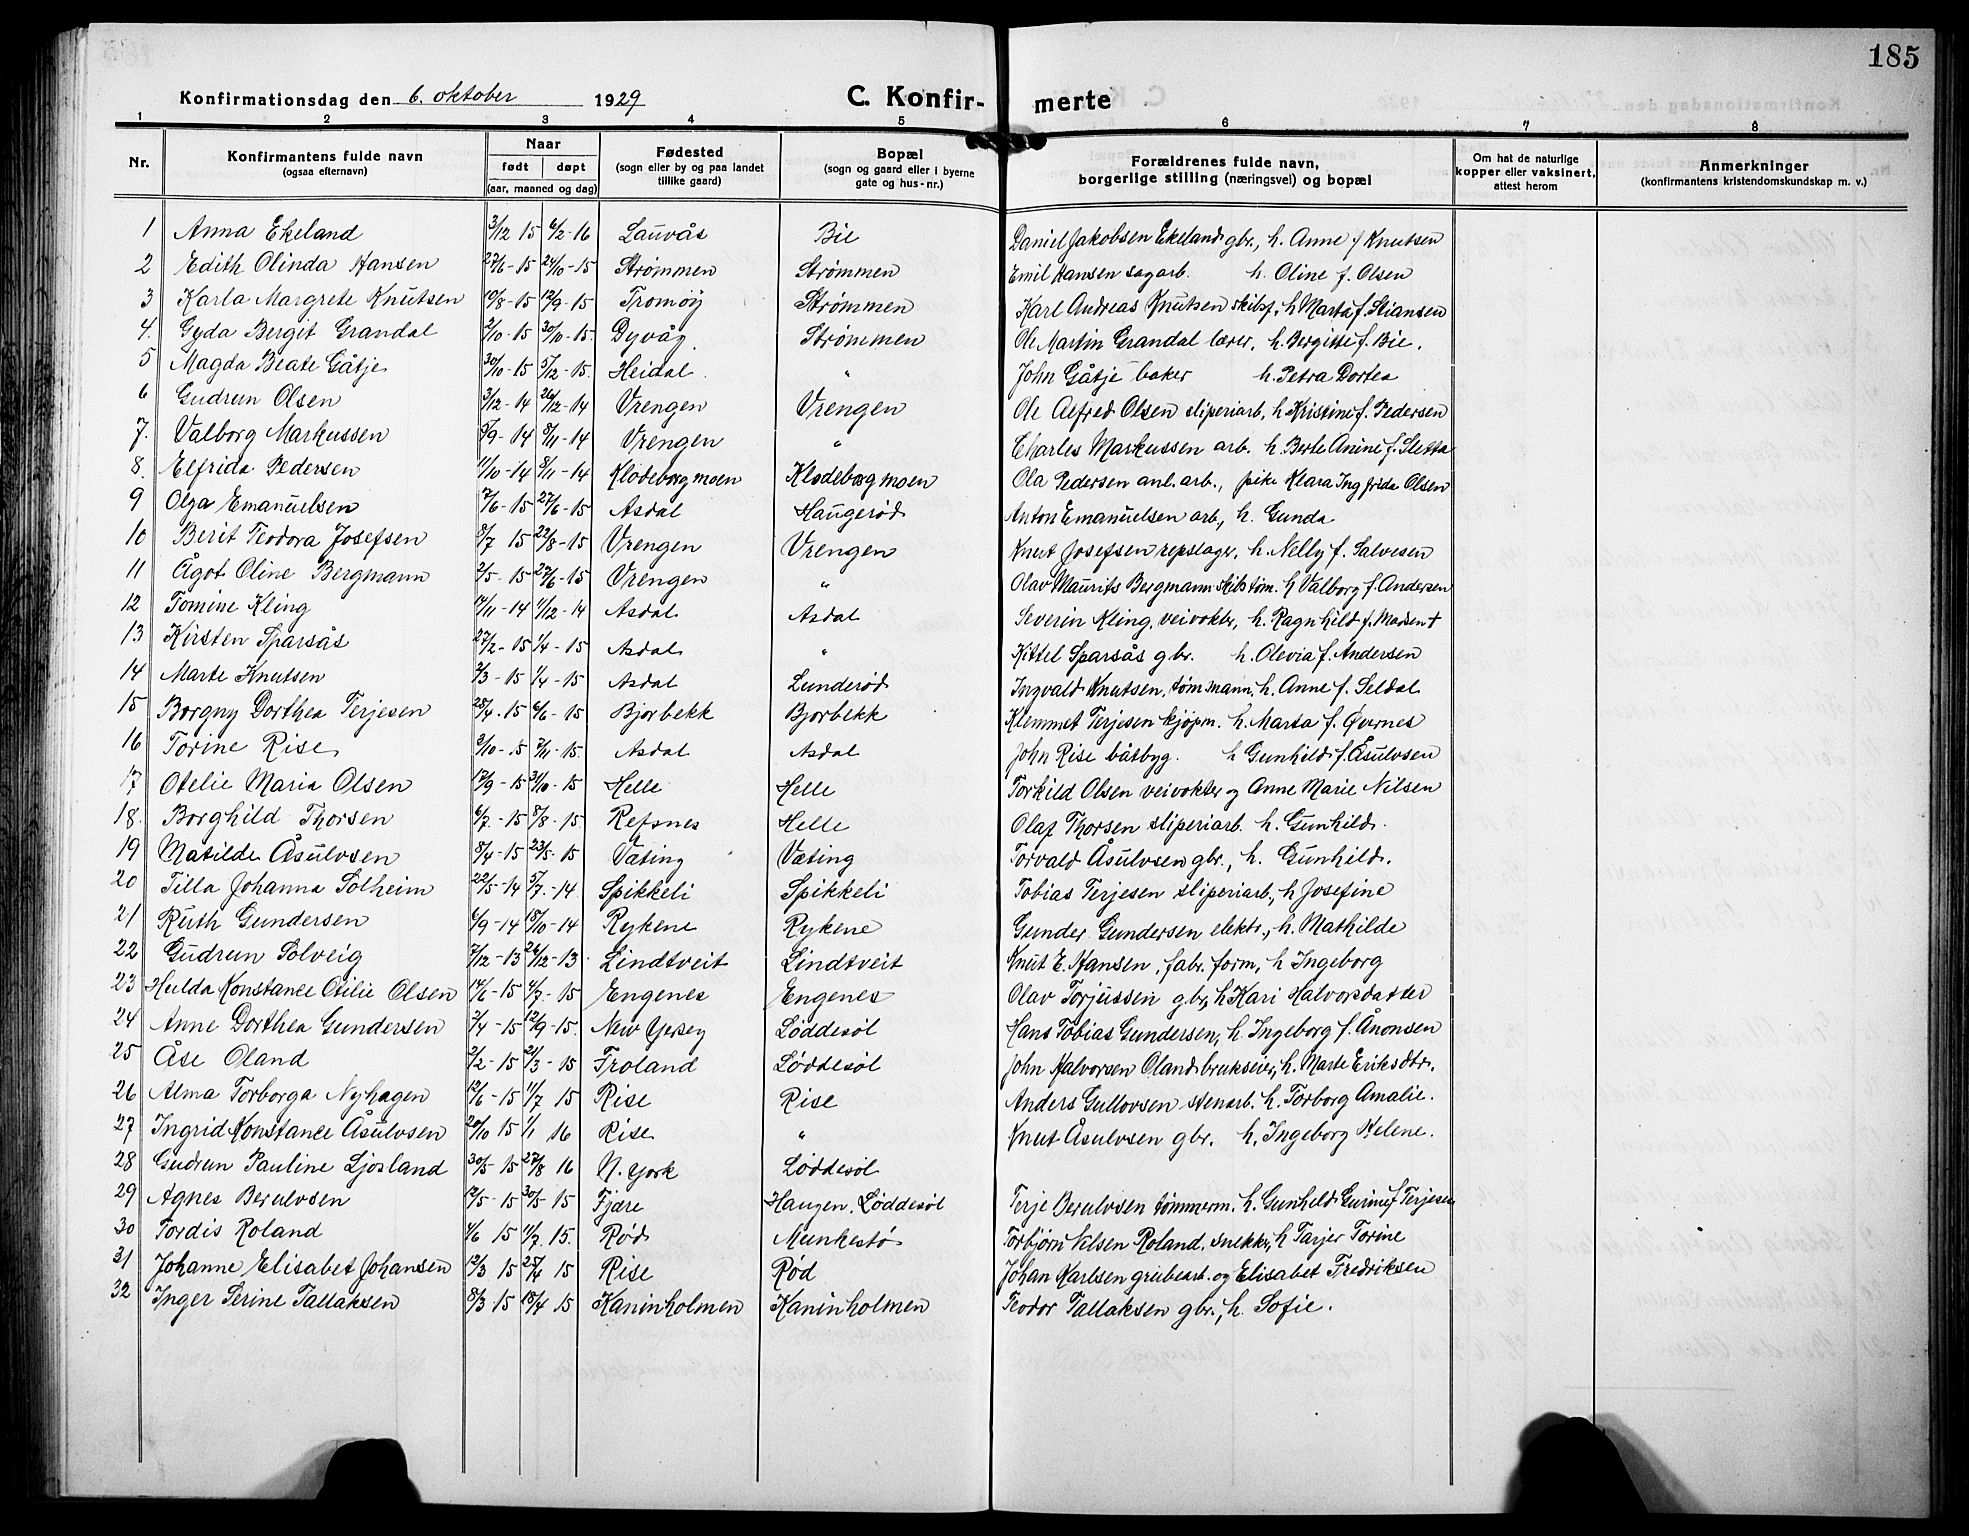 185
Konfirmationsdag den 6. oktober 1929 C. Konfir- merte
1 2 3 4 5 6 7 8
Nr. Konfirmantens fulde navn (ogsaa efternavn) Naar født døpt (aar, maaned og dag) Fødested (sogn eller by og paa landet tillike gaard) Bopæl (sogn og gaard eller i byerne gate og hus-nr.) Forældrenes fulde navn, borgerlige stilling (næringsvei) og bopæl Om hat de naturlige kopper eller vaksinert, attest herom Anmerkninger (konfirmantens kristendomskundskap m. v.)
1 Anna Ekeland 3/12 15 6/2-16 Lauvås Bie Daniel Jakobsen Ekeland gbr., h. Anne f Knutsen
2 Edith Olinda Hansen 27/6-15 24/10-15 Strømmen Strømmen Emil Hansen sagarb. h. Oline f. Olsen
3 Karla Margrete Knutsen 10/8-15 12/9-15 Tromøy Strømmen Karl Andreas Knutsen skibsf., h Marta f. Stiansen
4. Gyda Bergit Grandal 2/10-15 30/10-15. Dyvåg. Strømmen Ole Martin Grandal lærer, h. Bergitte f. Bie.
5 Magda Beate Gåtje 30/10-15 5/12-15. Heidal. " John Gåtje baker h. Petra Dortea
6 Gudrun Olsen 3/12-14 26/12-14 Vrengen Vrengen Ole Alfred Olsen sliperiarb, h Kristine f. Pedersen
7. Valborg Markussen 5/9-14 8/11-14 Vrengen " Charles Markussen arb. h. Berte Anine f. Sletta
8. Elfrida Pedersen 11/10-14 8/11-14 Klodeborgmoen Klodeborgmoen Ola Pedersen anl. arb., pike Klara Ingfrida Olsen
9 Olga Emanuelsen 7/6-15 27/6-15 Asdal Haugerød Anton Emanuelsen arb., h. Gunda
10 Berit Teodora Josefsen 8/7 15 22/8-15 Vrengen Vrengen Knut Josefsen repslager, h. Nelly f. Salvesen
11 Ågot Oline Bergmann 2/5-15 27/6-15 Vrengen " Olav Maurits Bergmann skibstøm. h Valborg f. Andersen
12 Tomine Kling 17/11-14 11/12-14 Asdal Asdal Severin Kling, veivokter, h. Ragnhild f. Madsen †
13 Kirsten Sparsås 27/2-15 1/4-15 Asdal " Kittel Sparsås gbr. h. Olevia f. Andersen
14 Marte Knutsen 2/3-15 1/4-15 Asdal Lunderød Ingvald Knutsen, tømmann, h. Anne f. Seldal
15 Borgny Dorthea Terjesen 28/4-15 6/6-15 Bjorbekk Bjorbekk Klemmet Terjesen kjøpm. h. Marta f. Øvrnes
16 Torine Rise 3/10-15 7/11-15. Asdal Asdal John Rise båtbyg. h Gunhild f. Åsulvsen
17 Otelie Maria Olsen 12/9-15 31/10-15 Helle Helle Torkild Olsen veivokter og Anne Marie Nilsen
18. Borghild Thorsen 6/7-15 8/8-15. Refsnes Helle Olaf Thorsen sliperiarb. h. Gunhild.
19 Matilde Åsulvsen 8/4-15 23/5-15 Væting Væting Torvald Åsulvsen gbr., h. Gunhild.
20 Tilla Johanna Solheim 22/5-14 5/7-14 Spikkeli Spikkeli Tobias Terjesen sliperiarb., h Josefine
21 Ruth Gundersen 6/9-14 18/10-14 Rykene Rykene Gunder Gundersen elektr., h. Mathilde
22 Gudrun Solveig 7/12-13 26/12-13 Lindtveit Lindtveit Knut E. Hansen, fabr. form, h Ingeborg
23 Hulda Konstance Otilie Olsen 17/6-15 4/7-15 Engenes Engenes Olav Torjussen gbr, h Kari Halvorsdatter
24 Anne Dorthea Gundersen 2/4-15 12/9-15. New Yersey Løddesøl Hans Tobias Gundersen, h. Ingeborg f. Ånonsen
25 Åse Oland 2/2-15 21/3-15 Froland Løddesøl John Halvorsen Oland brukseier, h. Marte Eriksdtr.
26 Alma Torborga Nyhagen 12/6-15 11/7 15 Rise Rise Anders Gullovsen stenarb. h. Torborg Amalie.
27 Ingrid Konstance Åsulvsen 20/10 15 1/1 16 Rise " Knut Åsulvsen gbr. h, Ingeborg Helene.
28 Gudrun Pauline Ljosland 30/5 15 27/8 16 N. York Løddesøl
29 Agnes Berulvsen 12/5-15 30/5 15 Fjære Haugen, Løddesøl Terje Berulvsen tømmerm. h. Gunhild Gurine f Terjesen
30 Tordis Roland 4/6 15 11/7.15. Rød Munkestø Torbjørn Nilsen Roland, snekker, h Tarjer Torine
31 Johanne Elisabet Johansen 12/3 15 25/4 15 Rise Rød Johan Karlsen grubearb. og Elisabet Fredriksen
32 Inger Serine Tallaksen 8/3 15 18/4 15 Kaninholmen Kaninholmen Teodor Tallaksen gbr., h. Sofie.